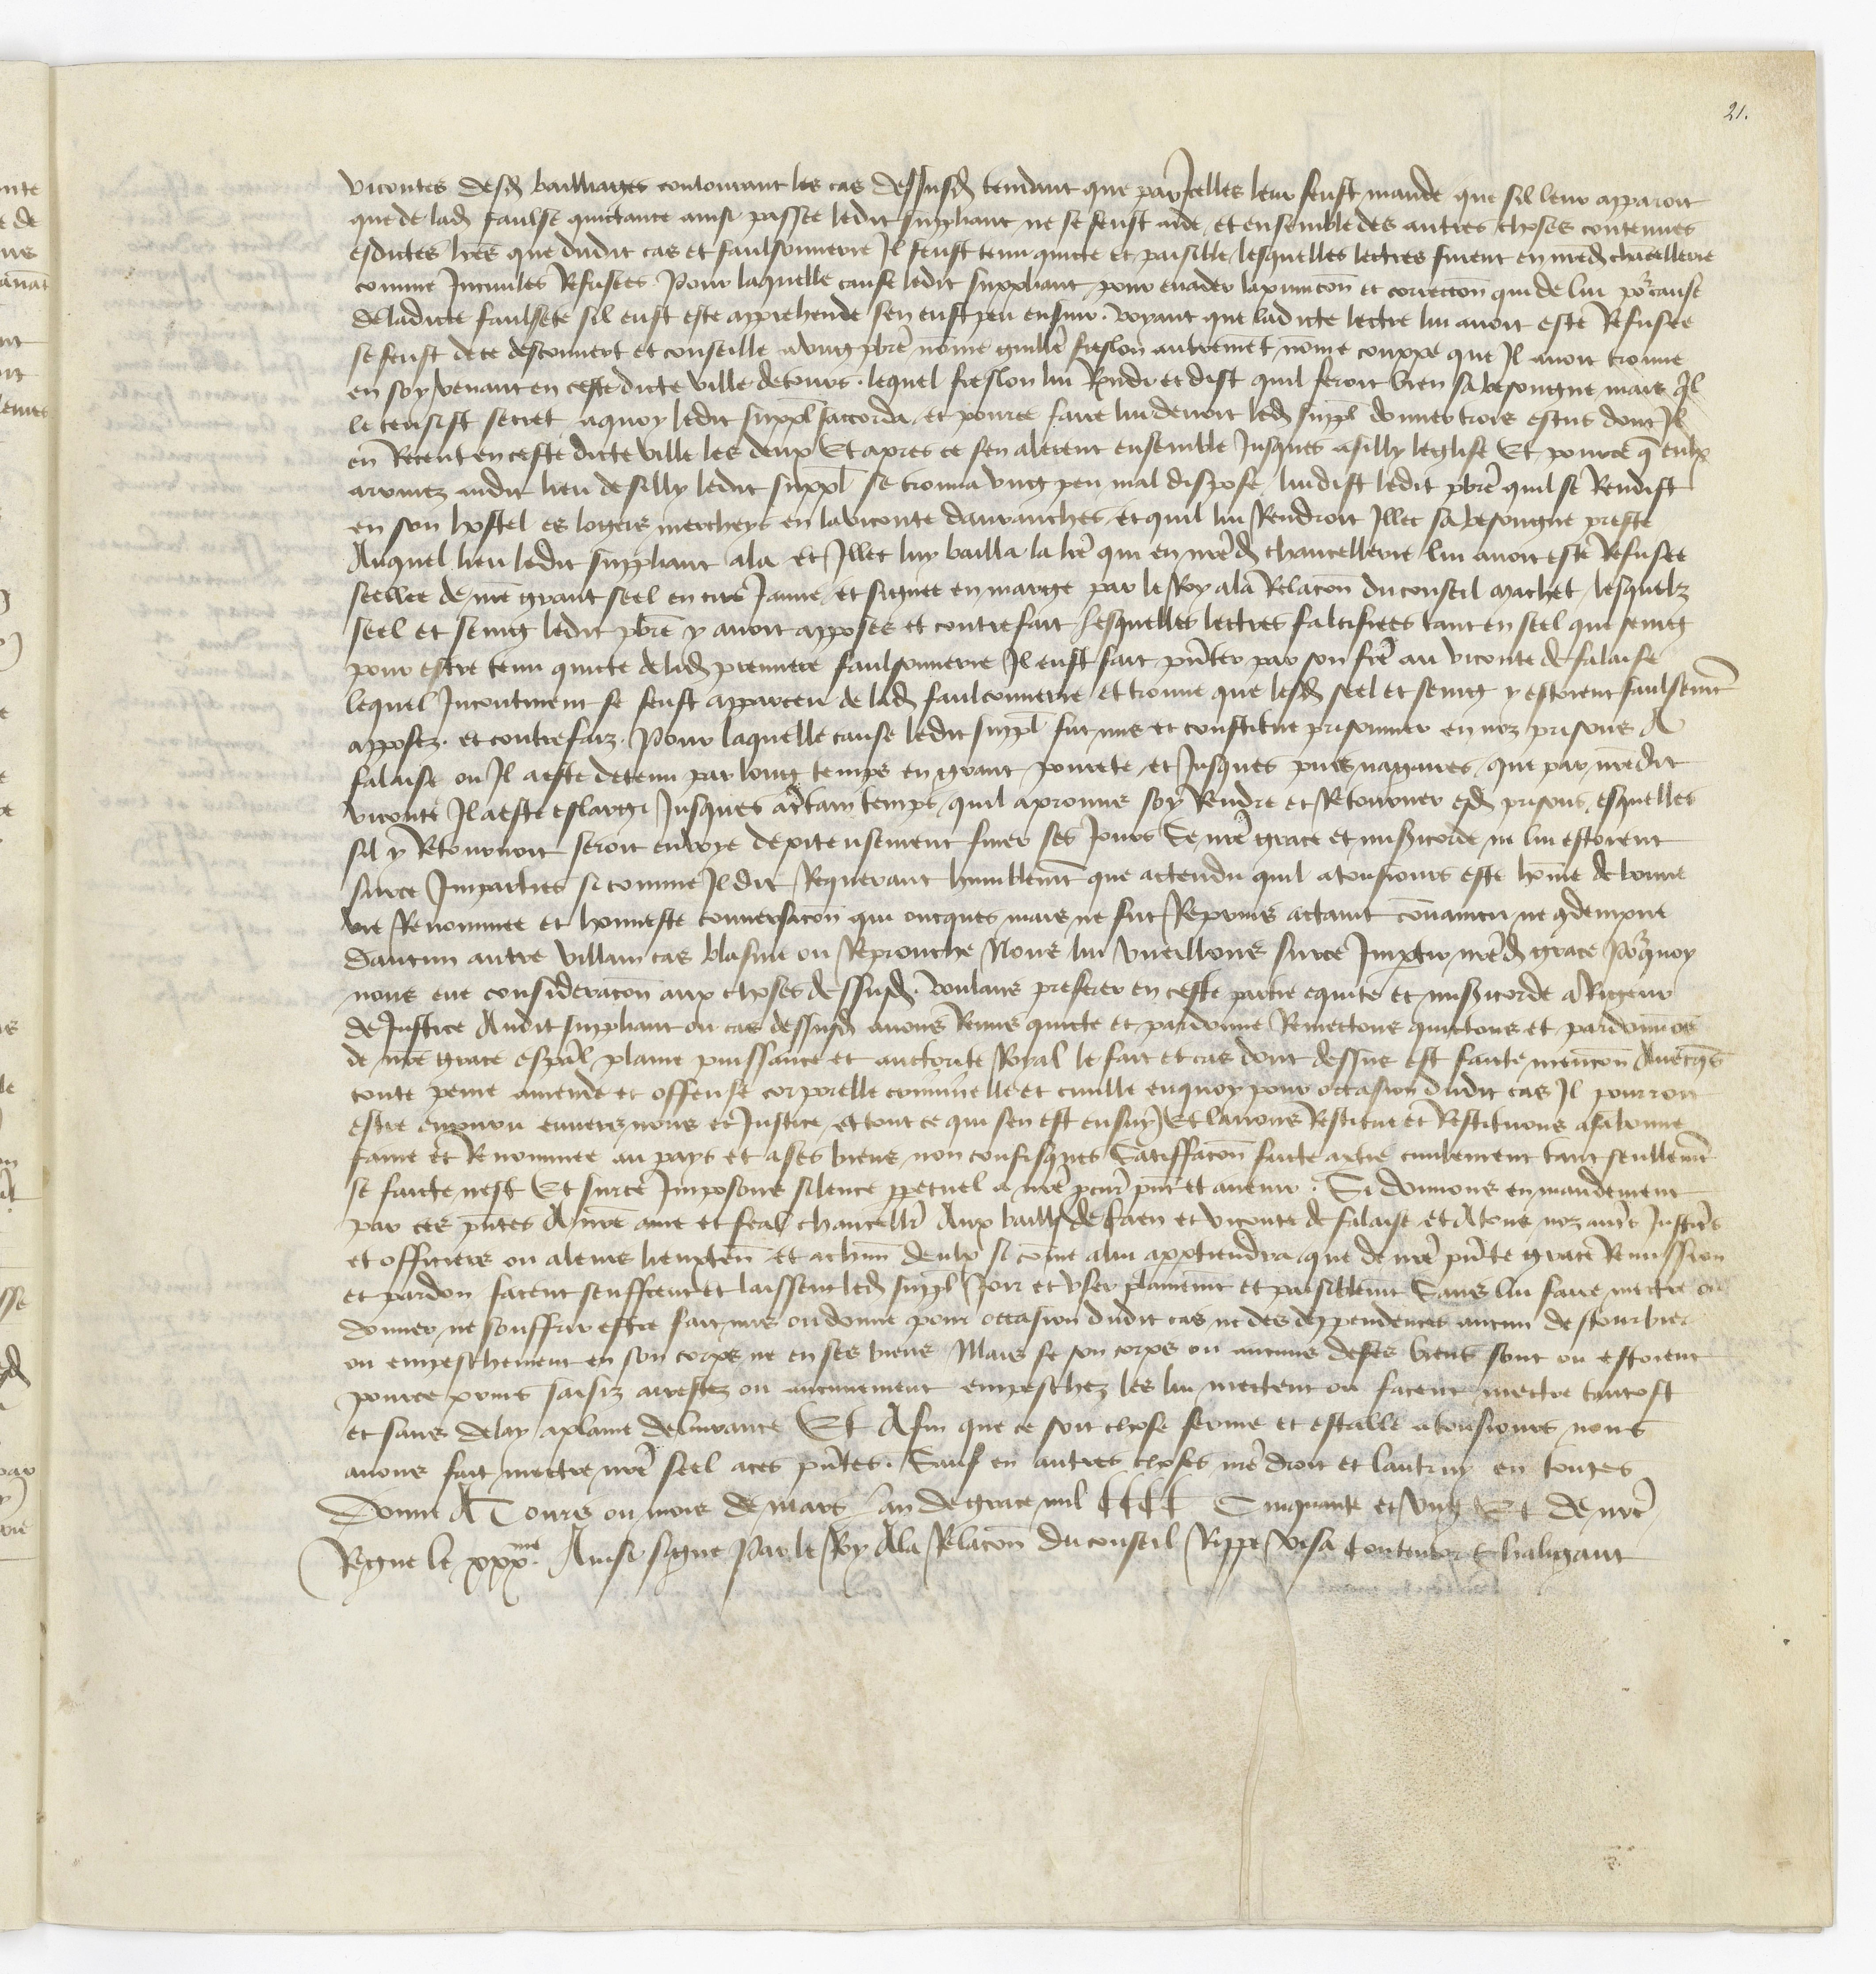 21.
vicontes desd bailliages contonuant les cas dessusd tendant que par Icelles leur feust mande que sil leur apparoit
que de lad faulse quictance ainsi passee ledit suppliant ne se feust aide et ensemble des autres choses contenues
esdictes lres que dudit cas et faulsonnerie Il feust tenu quicte et paisible lesquelles lectres furent en nred chancellerie
comme Inciuiles Refusees Pour laquelle cause ledit suppliant pour euader la punicon et correccon qui de lui por cause
de ladicte faulsete sil eust este apprehende sen eust peu ensuir . voyant que ladicte lectre lui auoit este Refusee
se feust de ce descouuert et conseille a vng pbre nome guille freslon autremet nome couppe que Il auoit trouue
en soy venant en ceste dicte ville de tours . lequel freslon lui Rndi et dist quil feroit bien sa besongne mais ql
le tensist secret aquoy ledit suppl saccorda et pource faire lui deuoit led suppl donner trois escus dont Il
en Receut en ceste dicte ville les deux Et apres ce sen alerent ensemble Jusques a silly leglise Et pource q eulx
arriuez audit lieu de silly ledit suppl se trouua vng peu mal dispose lui dist ledit pbre quil se Rendist
en son hostel es loges mercheys en la viconte dauranches et quil lui Rendroit Illec sa besongne preste
Auquel lieu ledit suppliant ala et Illec luy bailla la lre qui en nred chancellerie lui auoit este Refusee
seellee de nre grant seel en cire Jaune et signee en marge par le Roy ala Relacon du conseil machet lesquelz
seel et seing ledit pbre y auoit apposes et contrefait Lesquelles lectres falcifiees tant en seel que seing
pour estre tenu quicte de lad premiere faulsonnerie Il eust fait pnter par son fre au viconte de falaise
lequel Incontinent se feust apparceu de lad faulconnerie et trouue que lesd seel et seing y estoient faulsemt
apposez . et contrefaiz . Pour laquelle cause ledit suppl fut mis et constitue prisonnier en noz prisons A
falaise ou Il a este detenu par long temps en grant pourete et Jusques puis nagaires que par nredit
viconte Il a este eslargi Jusques a certain temps quil a promis soy Rendre et Retourner esd prisons esquelles
sil y Retournoit seroit en voye de piteusement finer ses Jours Se nre grace et misicorde ne lui estoient
surce Imparties si comme Il dit Requerant humblemt que actendu quil a tousiours este home de bonne
vie Renommee et honneste conuersacon qui oncques mais ne fut Reprins actaint conuaincu ne 9dempne
daucun autre villain cas blasme ou Reprouche Nous lui vueillons surce Impartir nred grace Porquoy
nous eue consideracon aux choses dessusd . voulans preferer en ceste partie equite et misicorde a Rigeur
de Justice Audit suppliant ou cas dessusd auons Remis quicte et pardonne Remectons quictons et pardonnos
de nre grace espal plaine puissance et auctorite Royal le fait et cas dont dessus est faicte mencon Auecqs
toute peine amende et offense corporelle criminelle et ciuille enquoy pour occasion dudit cas Il pourroit
estre encouru enuers nous et Justice et tout ce qui sen est ensuy Et lauons Restitue et Restituons a sa bonne
fame et Renommee au pays et a ses biens non confisques Satiffacon faicte a ptie ciuilement tant seullemt
se faicte nest Et surce Imposons silence ppetuel a nre pcur pnt et auenir . Si donnons en mandement
par ces pntes A nre ame et feal chancellr Aux bailli de Caen et viconte de falaise et A tous noz autrs Justicrs
et officiers ou aleurs lieuxten et achun deulx si come alui appartiendra que de nre pnte grace Remission
et pardon facent seuffrent et laissent led suppl Joir et vser plainemt et paisiblemt Sans lui faire mectre ou
donner ne souffrir estre fait mis ou donne pour occasion dudit cas ne des deppendences aucun destourbier
ou empeschement en son corps ne en ses biens Mais se son corps ou aucuns deses biens sont ou estoient
pource prins saisiz arrestez ou aucunement empeschez les lui mectent ou facent mectre tantost
et sans delay aplaine deliurance Et Afin que ce soit chose ferme et estable a tousiours nous
auons fait mectre nre seel aces pntes . Sauf en autres choses nre droit et lautruy en toutes
Donne A Tours ou mois de mars lan de grace mil CCCC Cinquante et vng Et de nre
Regne le xxxme . Ainsi signe Par le Roy Ala Relacon du conseil Rippe Visa Contentor E haligant